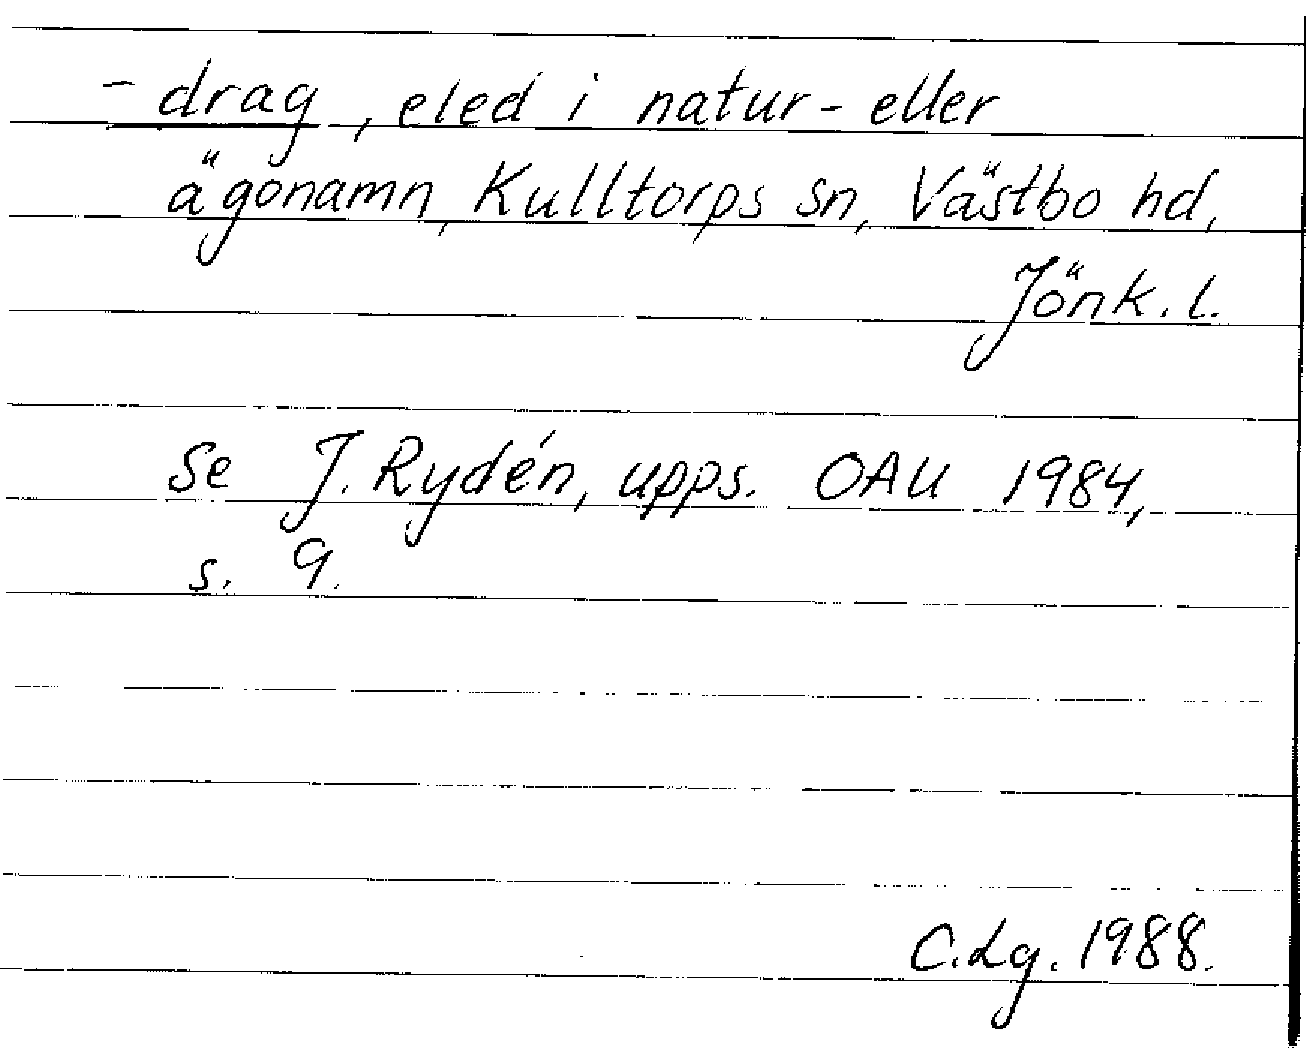 - drag, eled i natur- eller
ägonamn, Kulltorps sn, Västbo hd,
Jönk. l.
Se J. Rydén, upps. OAU 1984,
s. 9.
C. Lg. 1988.